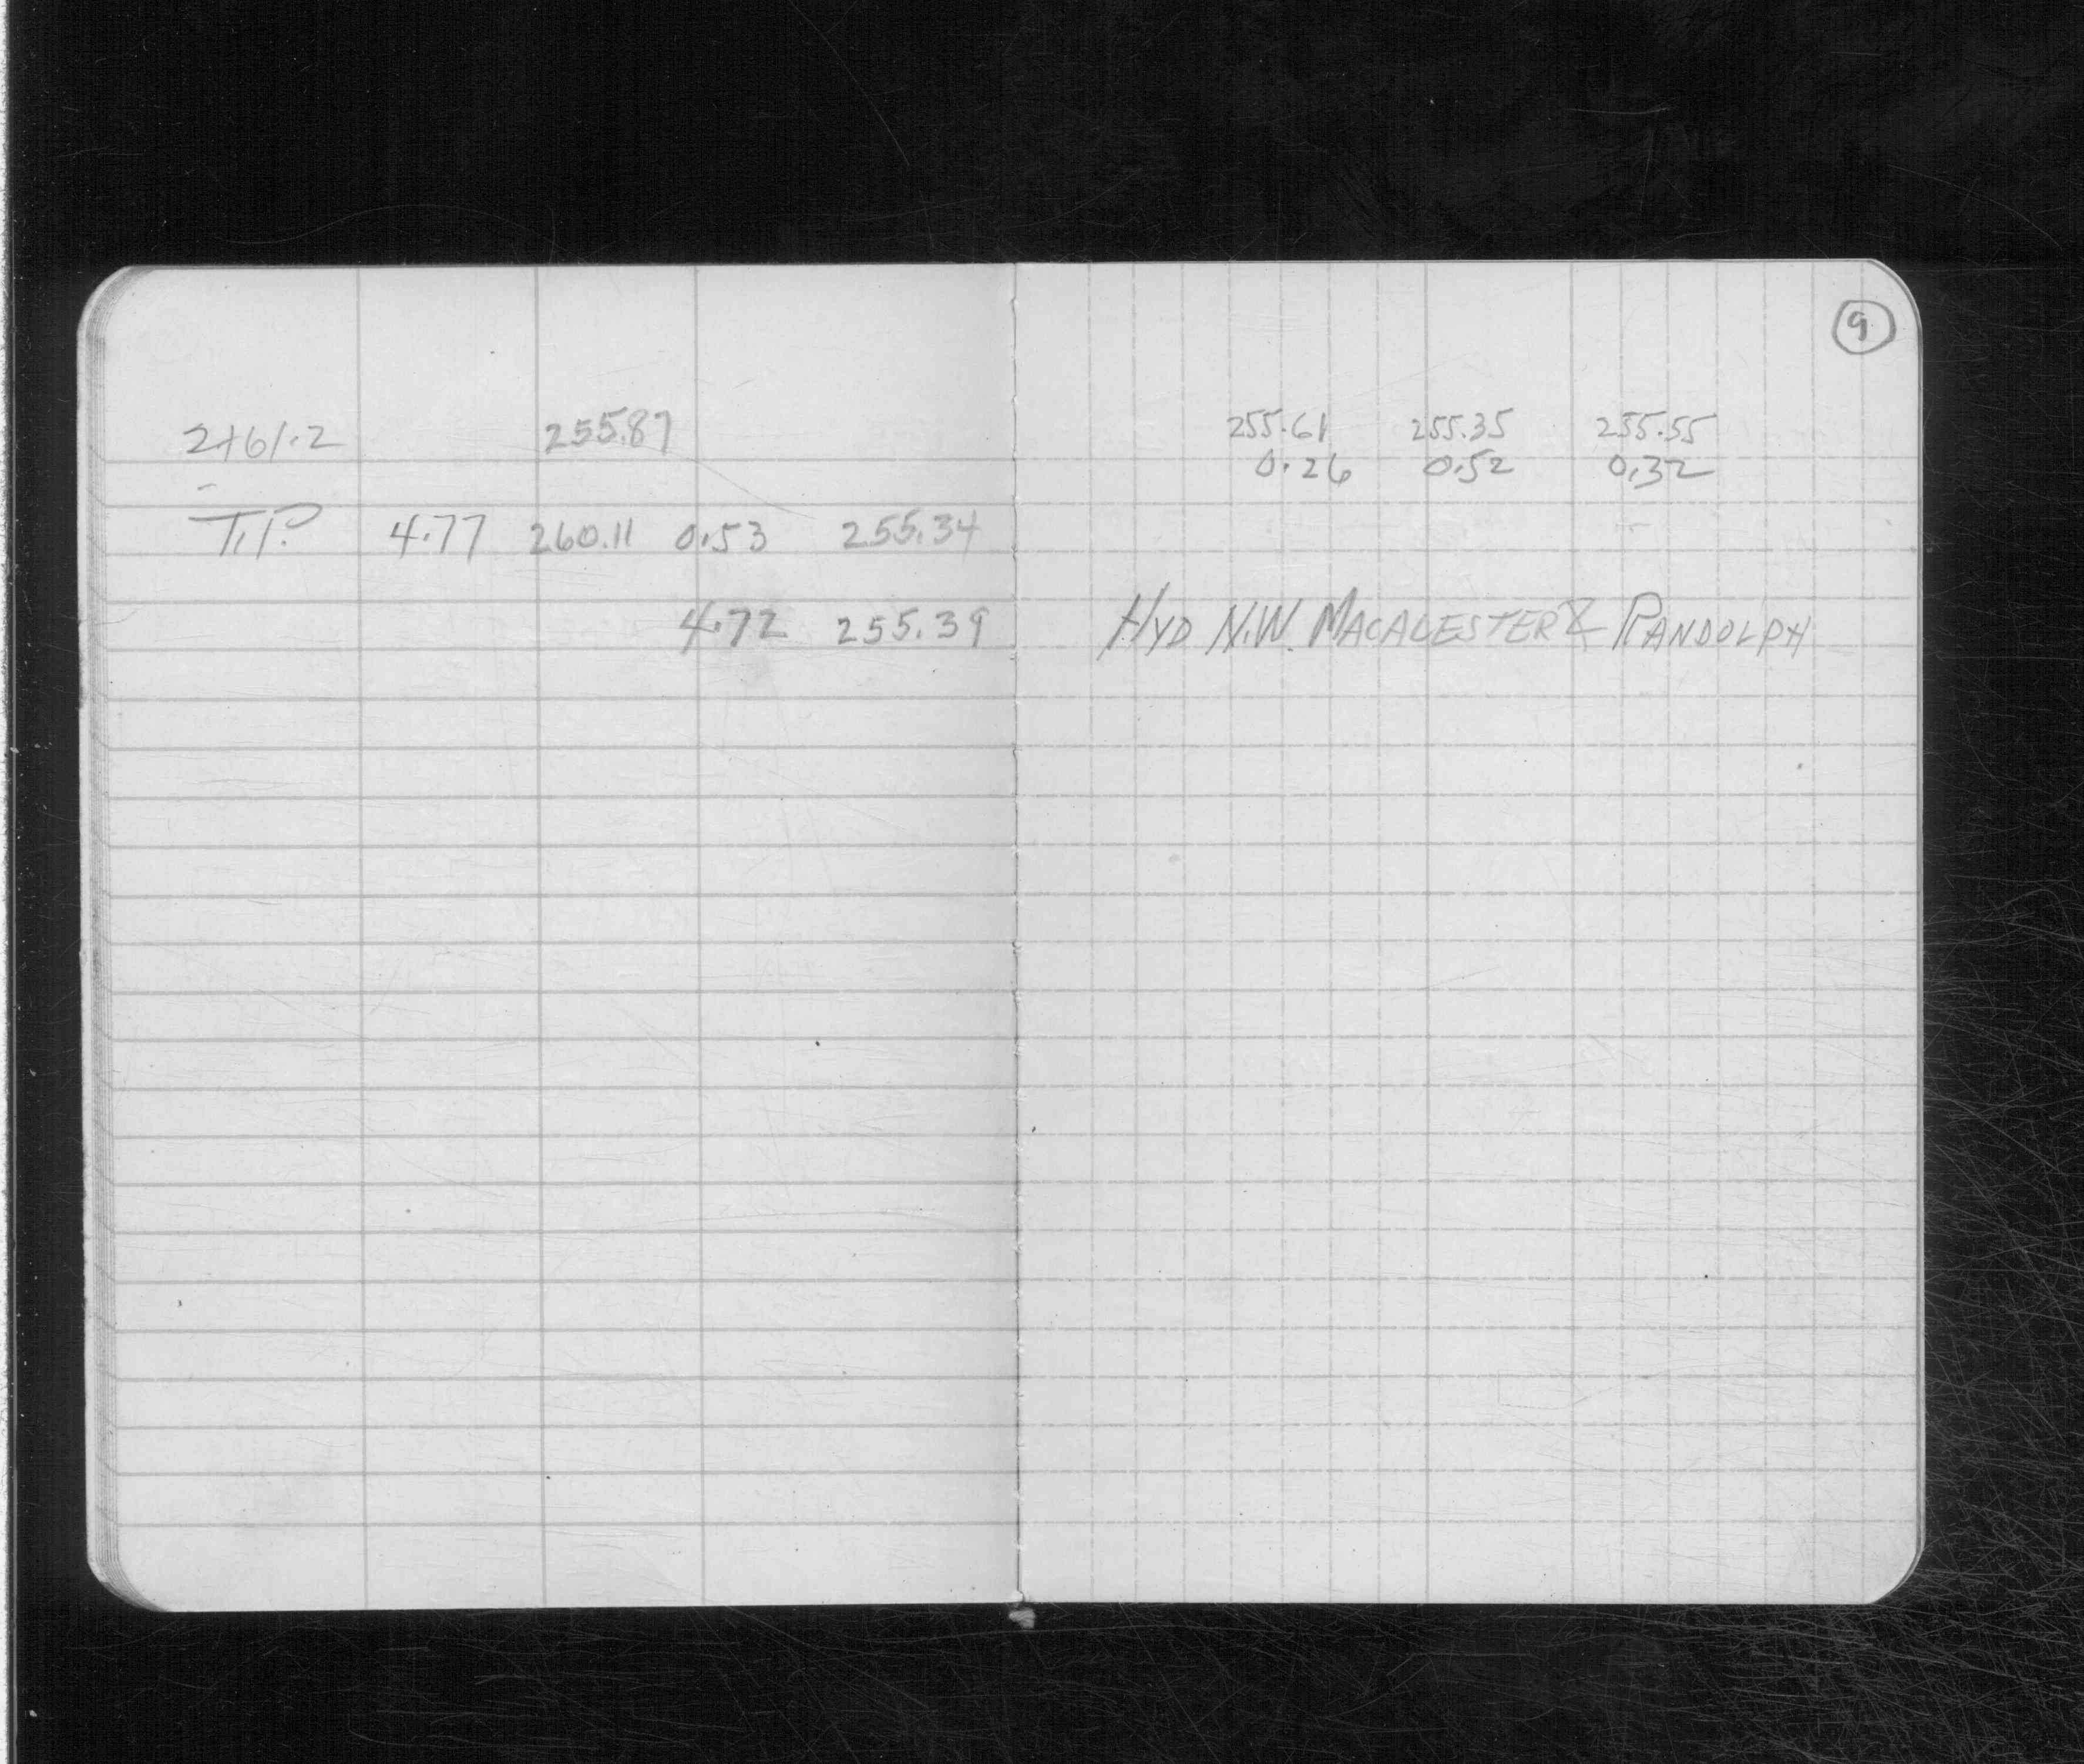 9
2+61.2 255.87 255.61 255.35 255.55
0.26 0.52 0.32
T.P. 4.77 260.11 0.53 255.34
4.72 255.39 HYD N.W. MACALESTER & RANDOLPH